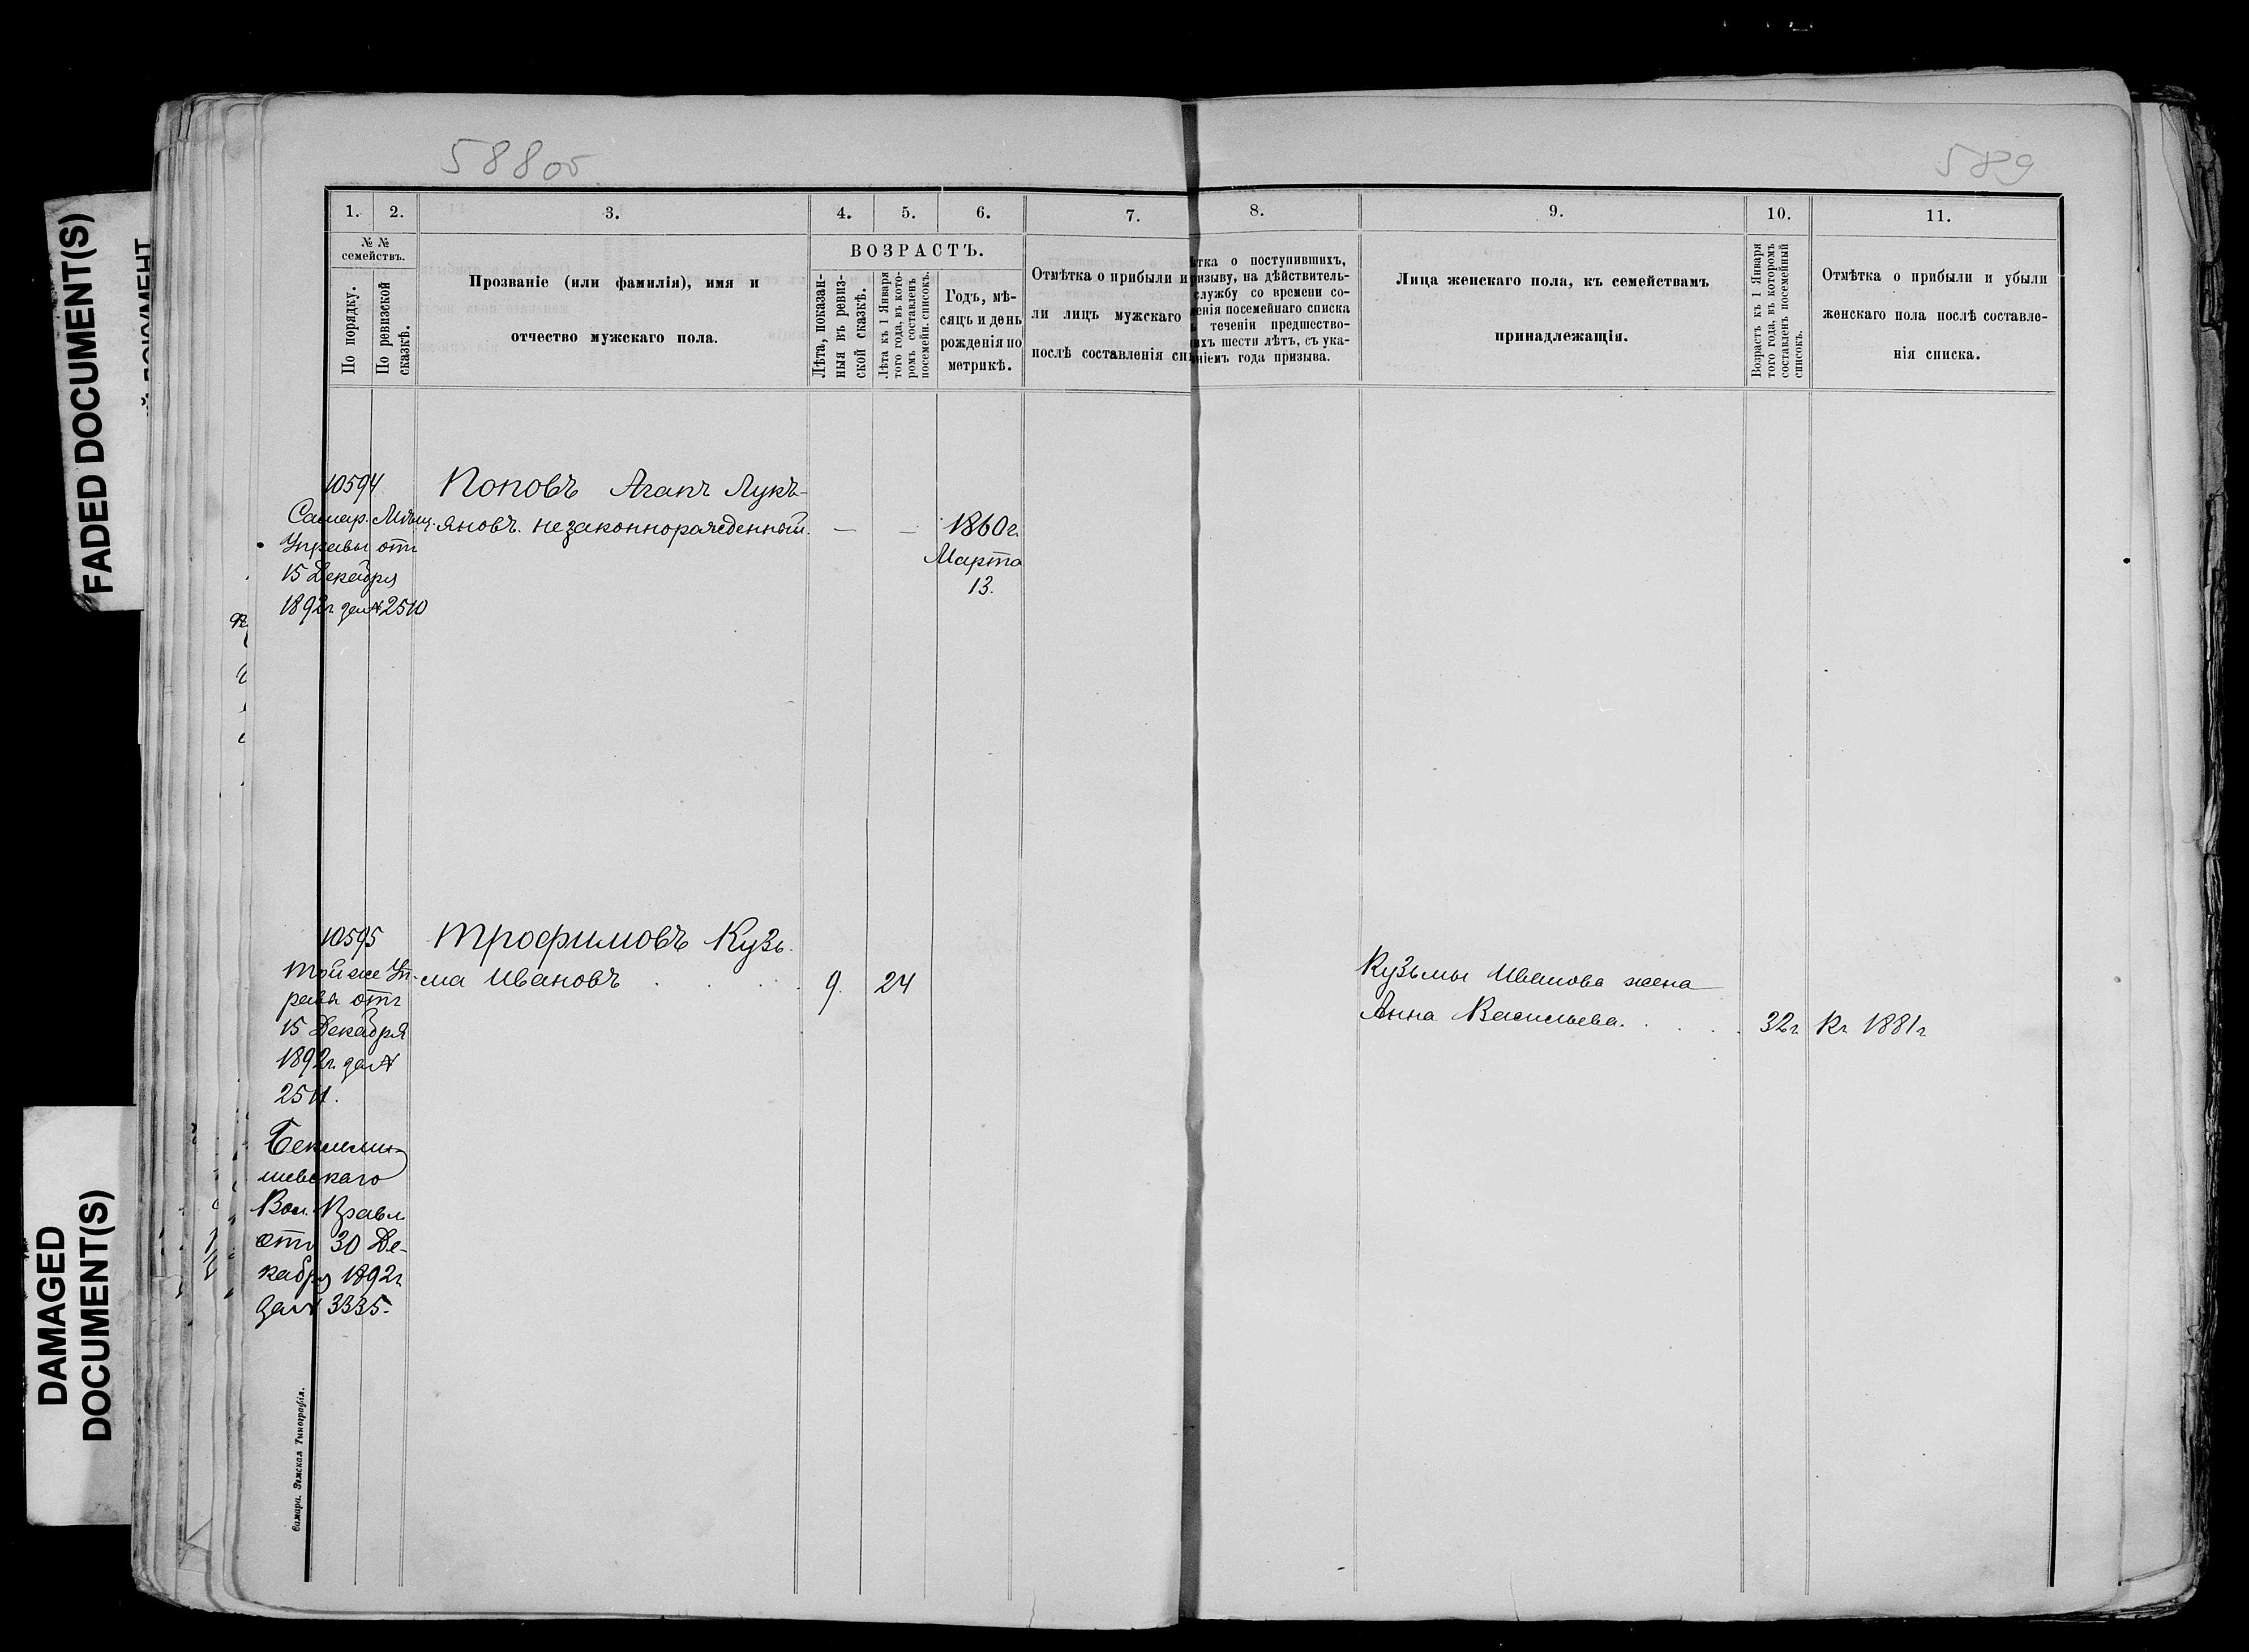 58805
589
FADED DOCUMENT(S)
DAMAGED
DOCUMENT(S)
1.
2.
3.
4.
5.
6.
7.
8.
9.
10.
11.
№ №
семействъ.
По порядку.
По ревизской
сказкѣ.
Прозваніе (или фамилія), имя и
отчество мужскаго пола.
ВОЗРАСТЪ.
Лѣта, показан-
ныя въ ревиз-
ской сказкѣ.
Лѣта къ 1 Января
того года, въ кото-
ромъ составленъ
посемейн. списокъ.
Годъ, мѣ-
сяцъ и день
рожденія по
метрикѣ.
Отмѣтка о прибыли и
ли лицъ мужскаго
послѣ составленія сп
ѣтка о поступившихъ,
ризыву, на дѣйствитель-
службу со времени со-
енія посемейнаго списка
теченіи предшество-
ихъ шести лѣтъ, съ ука-
ніемъ года призыва.
Лица женскаго пола, къ семействамъ
принадлежащія.
Возрастъ къ 1 Января
того года, въ которомъ
составленъ посемейный
списокъ.
Отмѣтка о прибыли и убыли
женскаго пола послѣ составле-
нія списка.
10594
Самар. Мѣщ.
Управы отъ
15 Декабря
1892г. за № 2510
Поповъ Агапъ Лукь-
яновъ. незаконнорожденный.
— —
1860г.
Марта
13.
10595
Той же Уп-
равы отъ
15 Декабря
1892г. за №
2511.
Бекшеми-
шевскаго
Вол. Правл.
отъ 30 Де-
кабря 1892г.
за № 3335.
Трофимовъ Кузь-
ма Ивановъ
9. 24
Кузьмы Иванова жена
Анна Васильева.
32г.
Къ 1881г.
Самара. Земская Типографія.